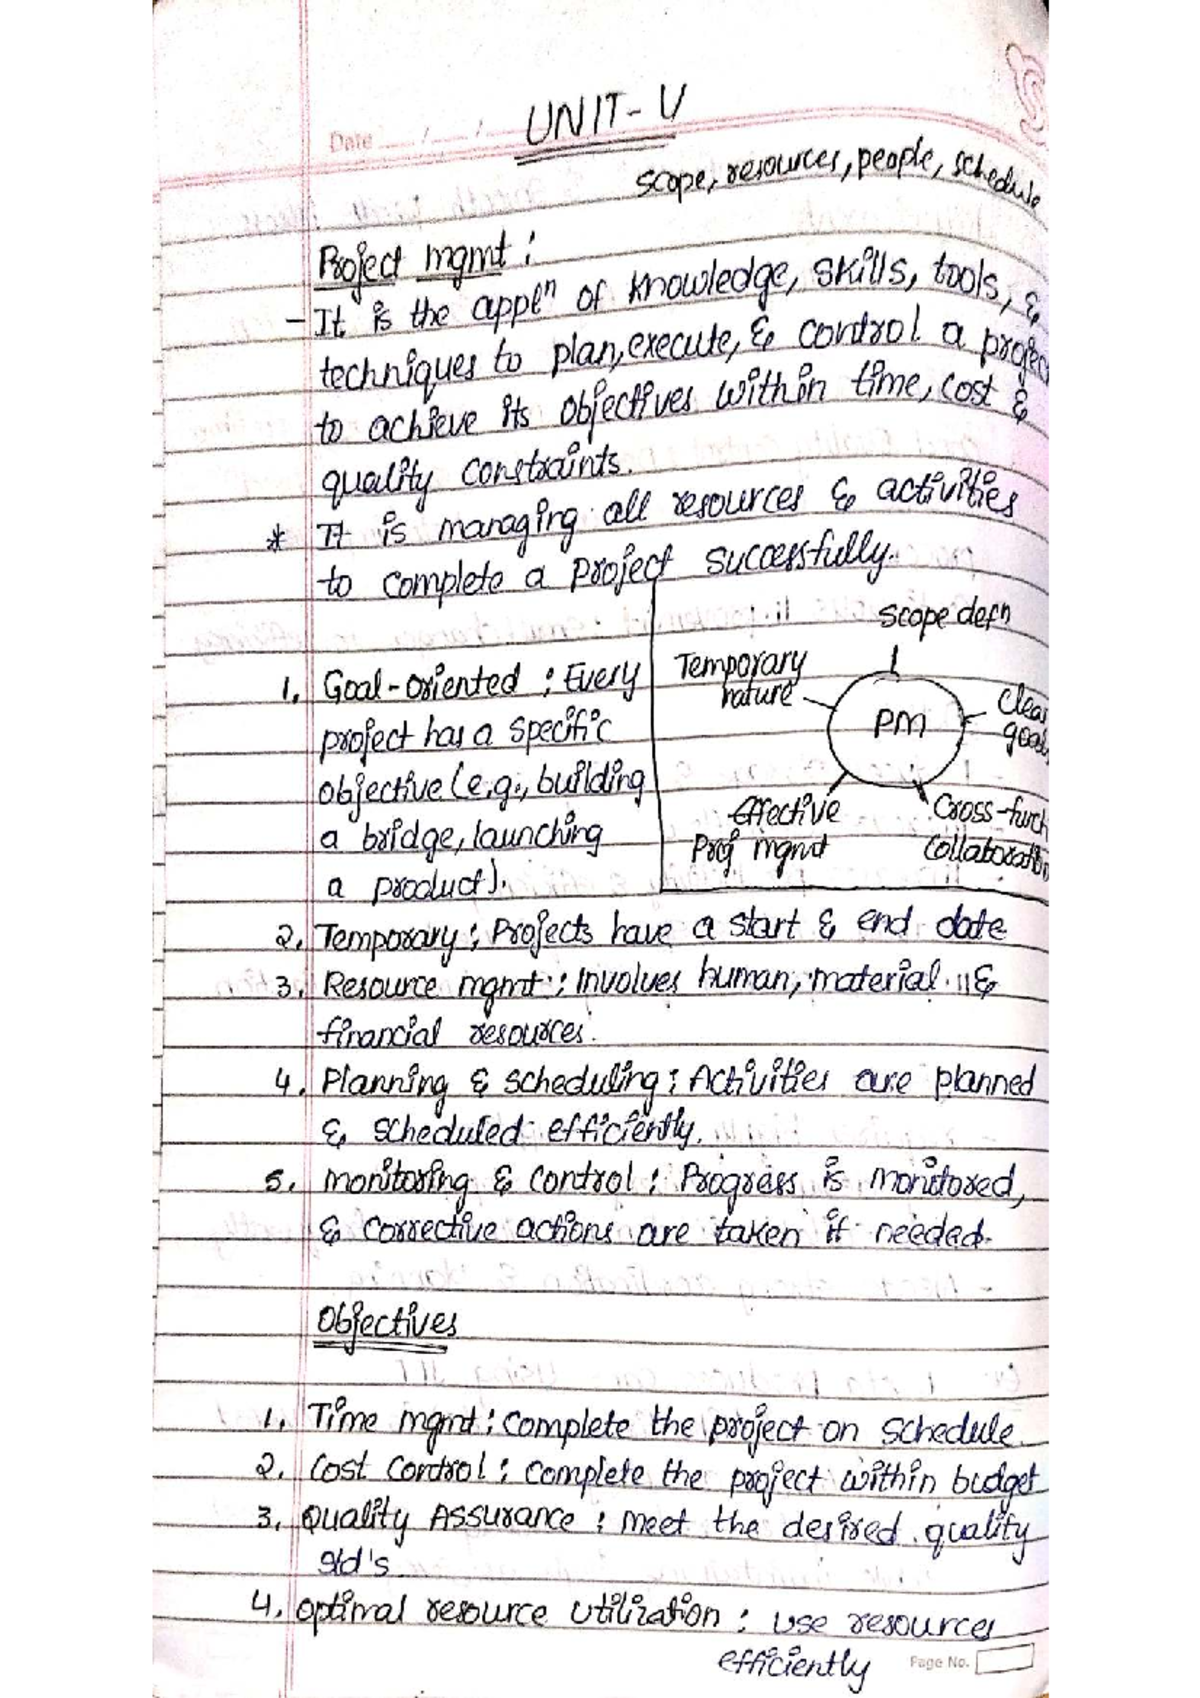 UNIT-V
Date
scope, resources, people, schedule
Project mgmt :
- It is the appln of knowledge, skills, tools, &
techniques to plan, execute, & control a projec
to achieve its objectives within time, cost &
quality constraints.
* It is managing all resources & activities
to complete a project successfully.
Scope defn
Temporary
nature
PM
Clear
goal
Effective
Proj mgmt
Cross-funct
Collaboration
1. Goal-oriented : Every
project has a specific
objective (e.g., building
a bridge, launching
a product).
2. Temporary : Projects have a start & end date
3. Resource mgmt : Involves human, material &
financial resources.
4. Planning & scheduling : Activities are planned
& scheduled efficiently.
5. monitoring & control : Progress is monitored,
& corrective actions are taken if needed.
Objectives
1. Time mgmt : Complete the project on schedule.
2. Cost Control : Complete the project within budget
3. Quality Assurance : Meet the desired quality
std's.
4. Optimal resource utilization : use resources
efficiently
Page No.